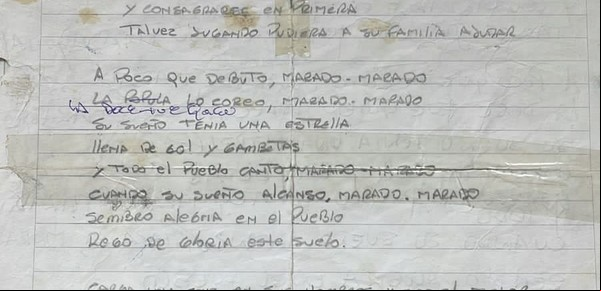 Y CONSAGRARSE EN PRIMERA
TALVEZ JUGANDO PUDIERA A SU FAMILIA AYUDAR
A POCO QUE DEBUTO, MARADO - MARADO
LA POPULA LO COREO, MARADO - MARADO
LA DOCE
SU SUEÑO TENIA UNA ESTRELLA
LLENA DE GOL Y GAMBETAS
Y TODO EL PUEBLO CANTO, MARADO - MARADO
CUANDO SU SUEÑO ALCANSO, MARADO - MARADO
SEMBRO ALEGRIA EN EL PUEBLO
REGO DE GLORIA ESTE SUELO.